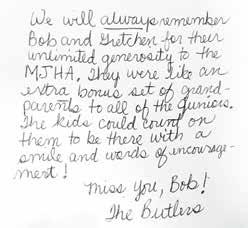 We will always remember
Bob and Gretchen for their
unlimited generosity to the
MJHA. They were like an
extra bonus set of grand-
parents to all of the Juniors.
The kids could count on
them to be there with a
smile and words of encourage-
ment!
Miss you, Bob!
The Butlers